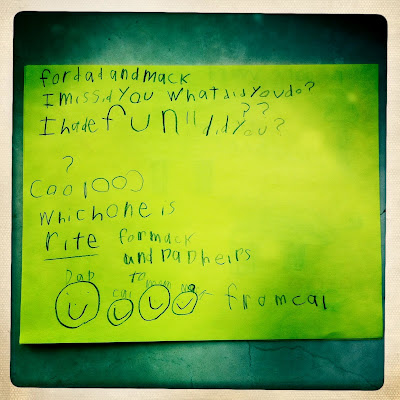 for dad and mack
I missid you what did you do?
? ?
I hade fun!! did you?
?
which one is
rite for mack
and DaD heirs
Dad to
cal mom
from cal